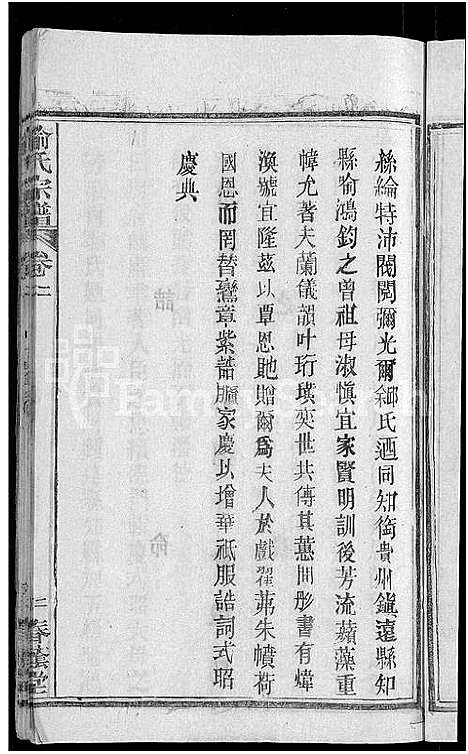 絲綸特沛閥閱彌光爾鄒氏迺同知銜貴州鎮遠縣知
縣喻鴻鈞之曾祖母淑慎宜家賢明訓後芳流蘋藻重
幃允著夫蘭儀韻叶珩璜奕世共傳其蕙問彤書有煒
渙號宜隆茲以覃恩貤贈爾為夫人於戲翟茀朱幩荷
國恩而罔替鸞章紫誥牖家慶以增華祇服誥詞式昭
慶典
喻氏宗譜
卷二
春蔭堂